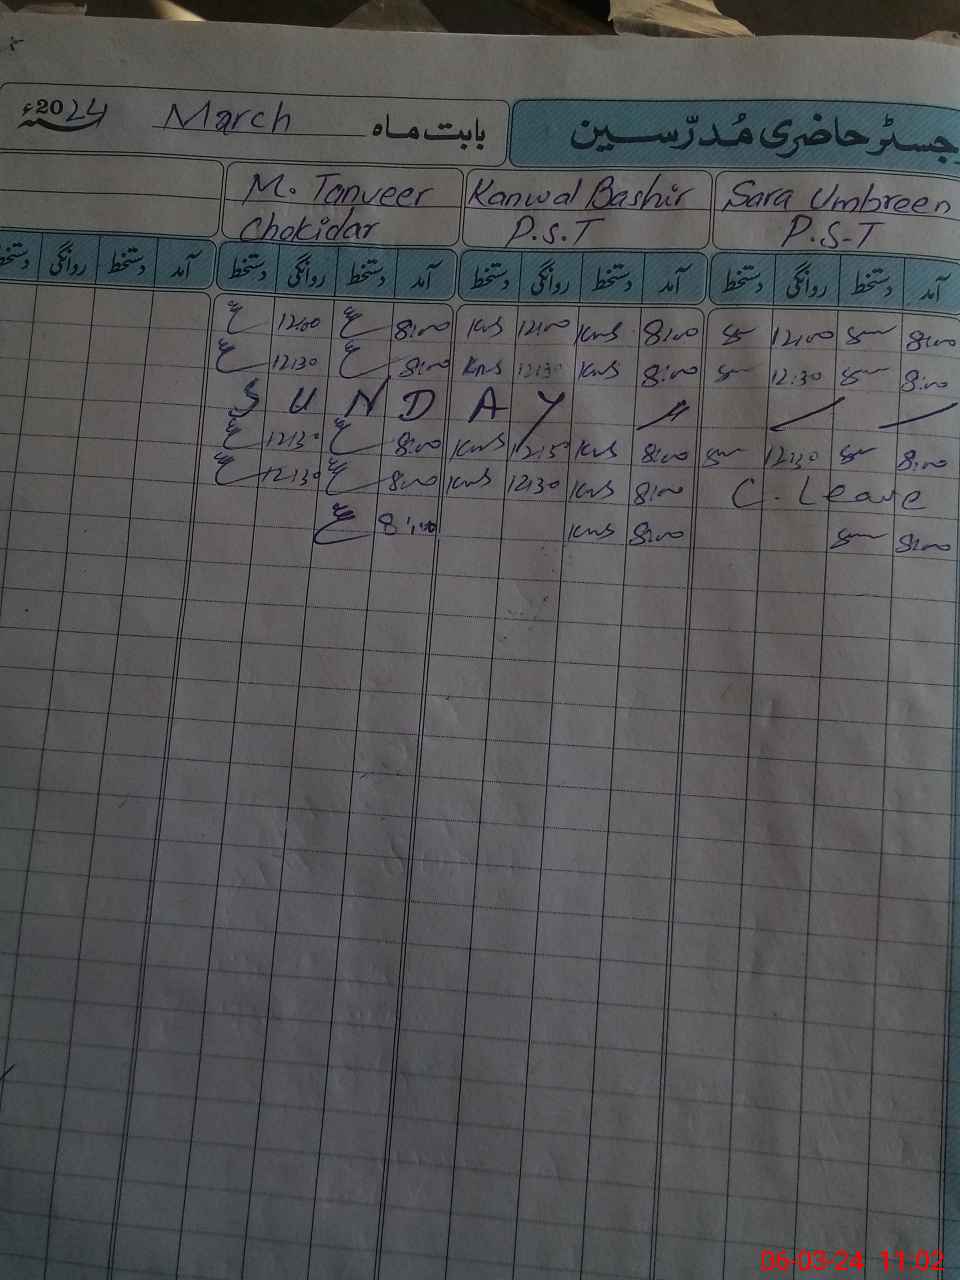 رجسٹر حاضری مُدرّسین بابت ماہ March 2024ء
Sara Umbreen Kanwal Bashir M. Tanveer
P.S.T P.S.T Chokidar
آمد دستخط روانگی دستخط آمد دستخط روانگی دستخط آمد دستخط روانگی دستخط آمد دستخط روانگی دستخط
8:00 12:00 8:00 KNS 12:00 KNS 8:00 12:00
8:00 12:30 8:00 KNS 12:30 KNS 8:00 12:30
SUNDAY
8:00 12:30 8:00 KNS KNS 8:00 12:30
C. Leave 8:00 KNS 12:30 KNS 8:00 12:30
8:00 8:00 KNS 8:00
06-03-24 11:02